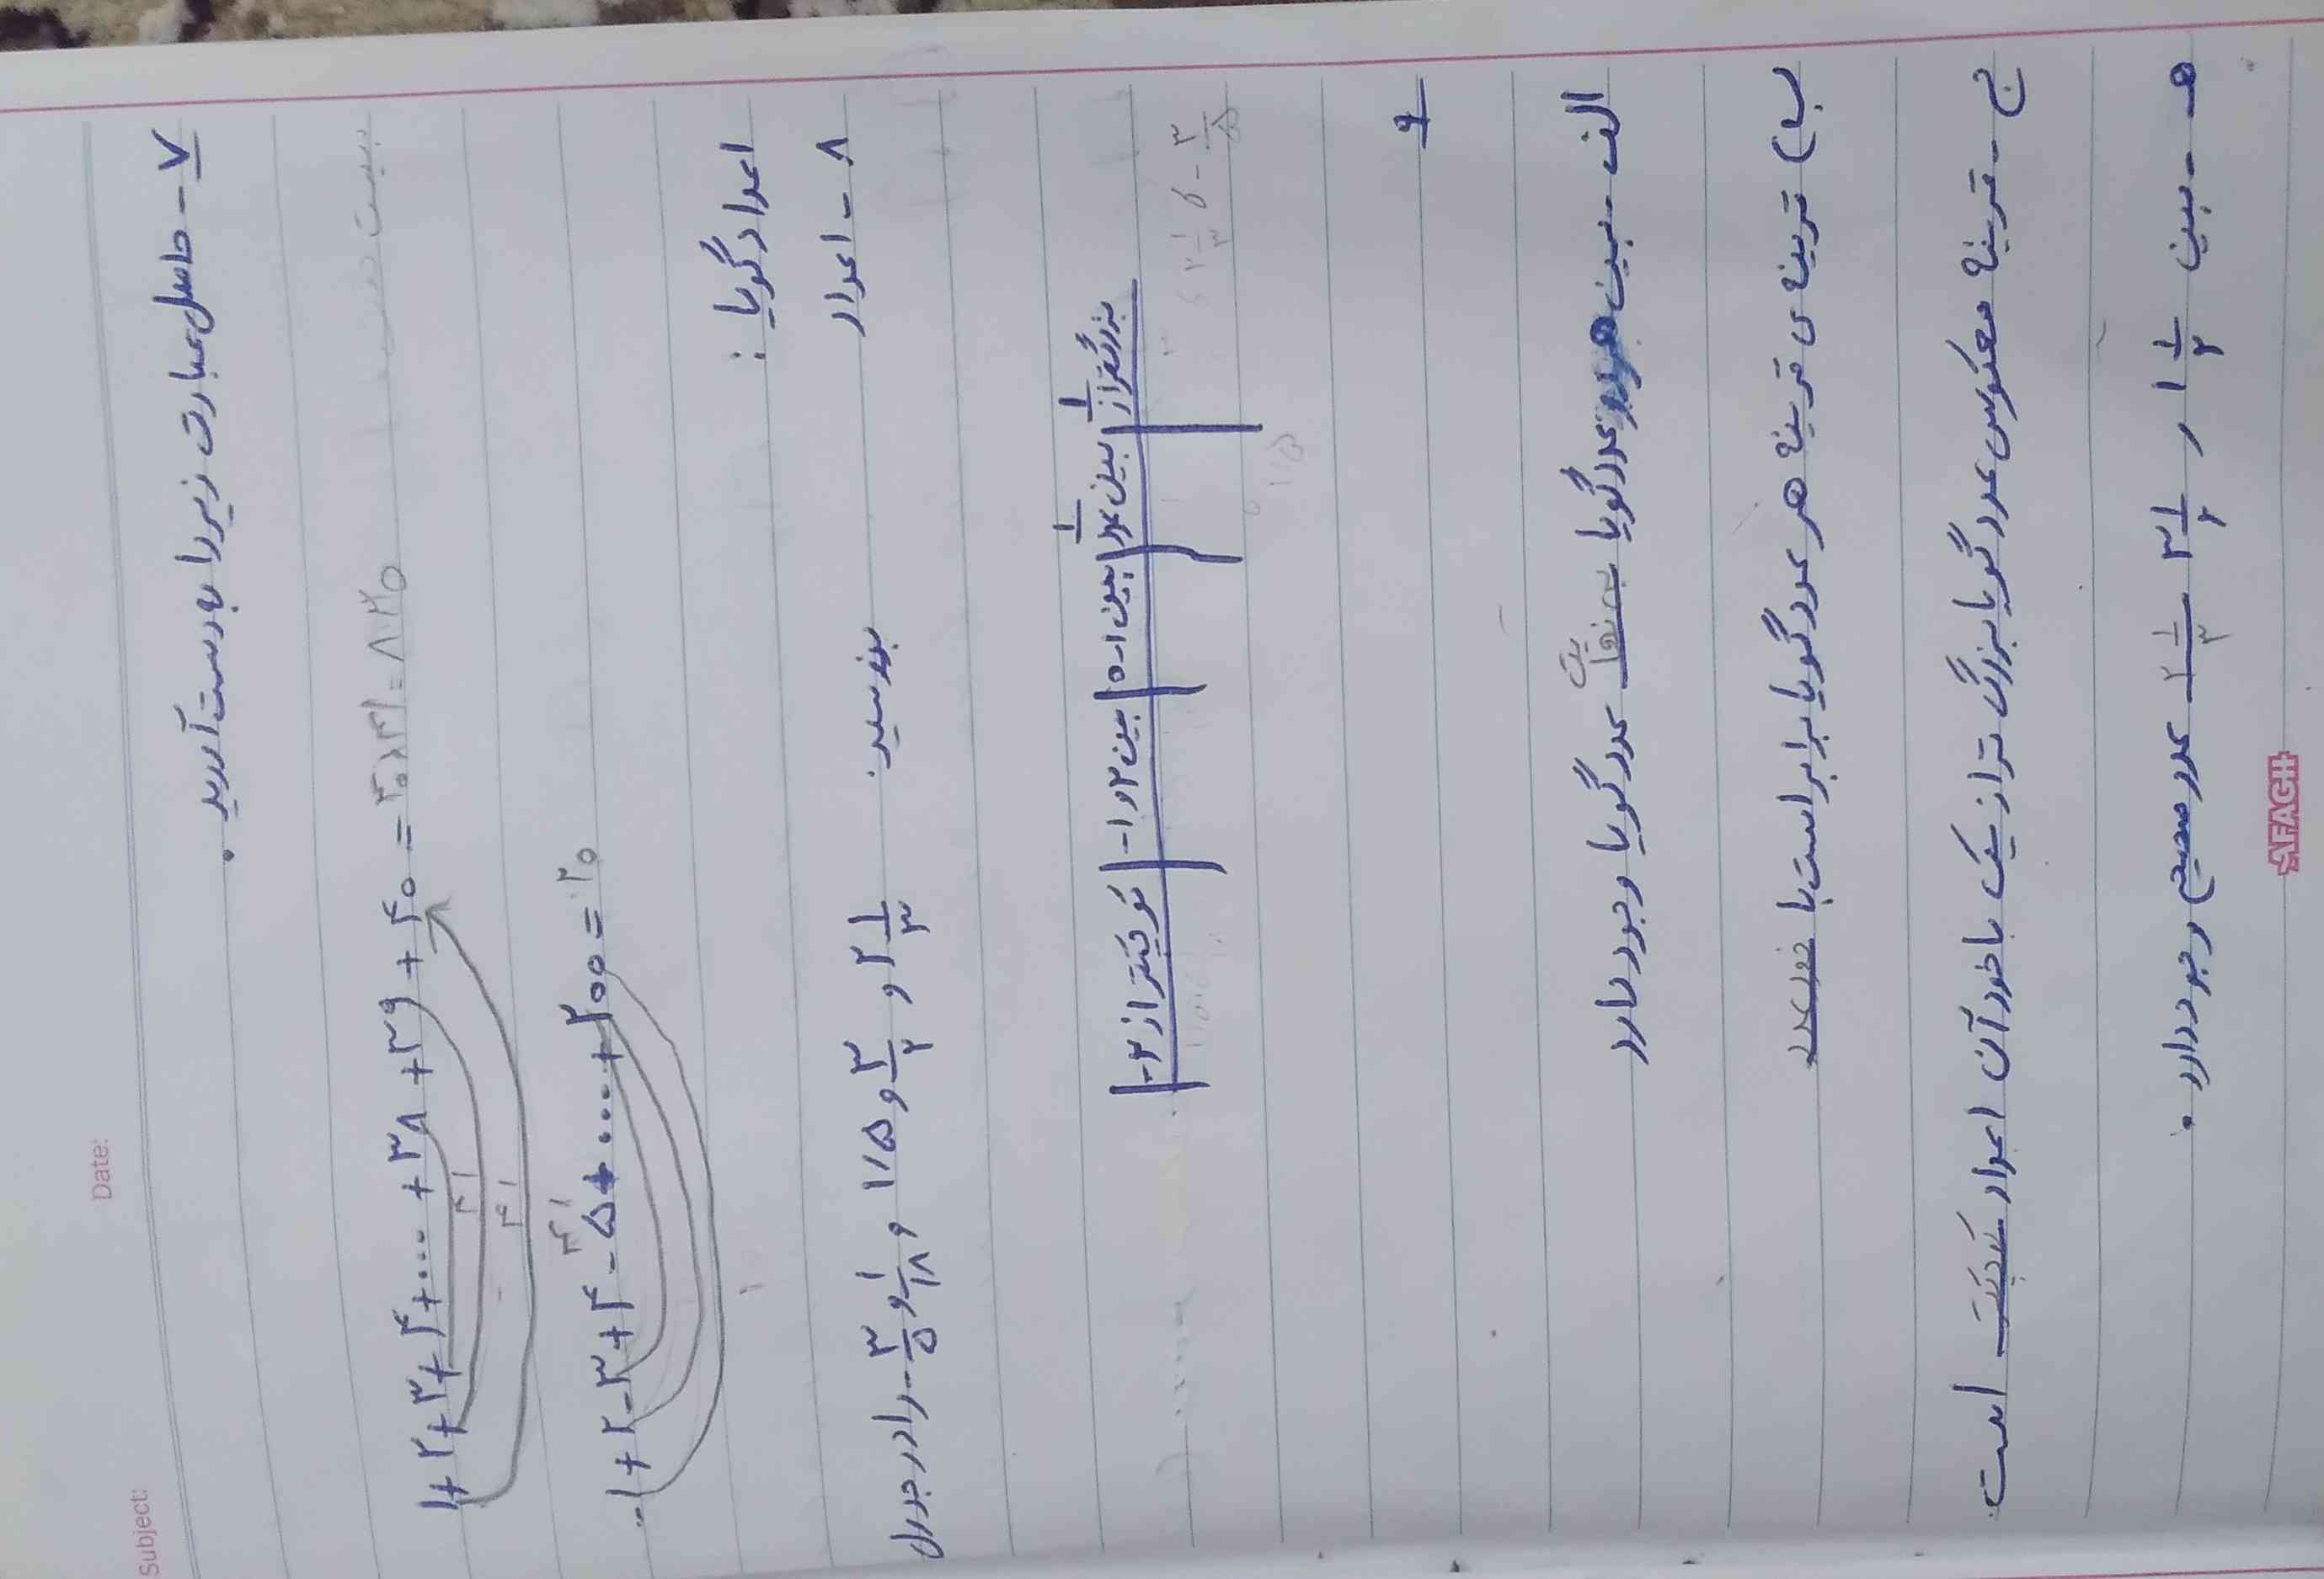 Subject:
Date:
۷- حاصل عبارت زیر را به دست آورید.
۱+۲+۳+۴+...+۳۸+۳۹+۴۰=۲۰×۴۱=۸۲۰
۴۱
۴۱
-۱+۲-۳+۴-۵+...+۲۰۰=
اعداد گویا:
۸- اعداد
۲ ۱/۳ و ۳/۲ و ۱/۵ و ۱/۱۸ و -۳/۵ را در جدول
بنویسید.
بزرگتر از ۱ | بین ۰ و ۱ | بین ۱-و۰ | بین ۲ و ۱- | کوچکتر از ۲-
۹
الف- بین هر دو عدد گویا بی نهایت عدد گویا وجود دارد
ب) قرینه ی قرینه هر عدد گویا برابر است با خود عدد
ج- قرینه معکوس عدد گویا بزرگ تر از یک با خود آن اعداد است.
هـ- بین ۱ ۱/۲ و ۳ ۱/۲ عدد صحیح وجود دارد.
AFAGH